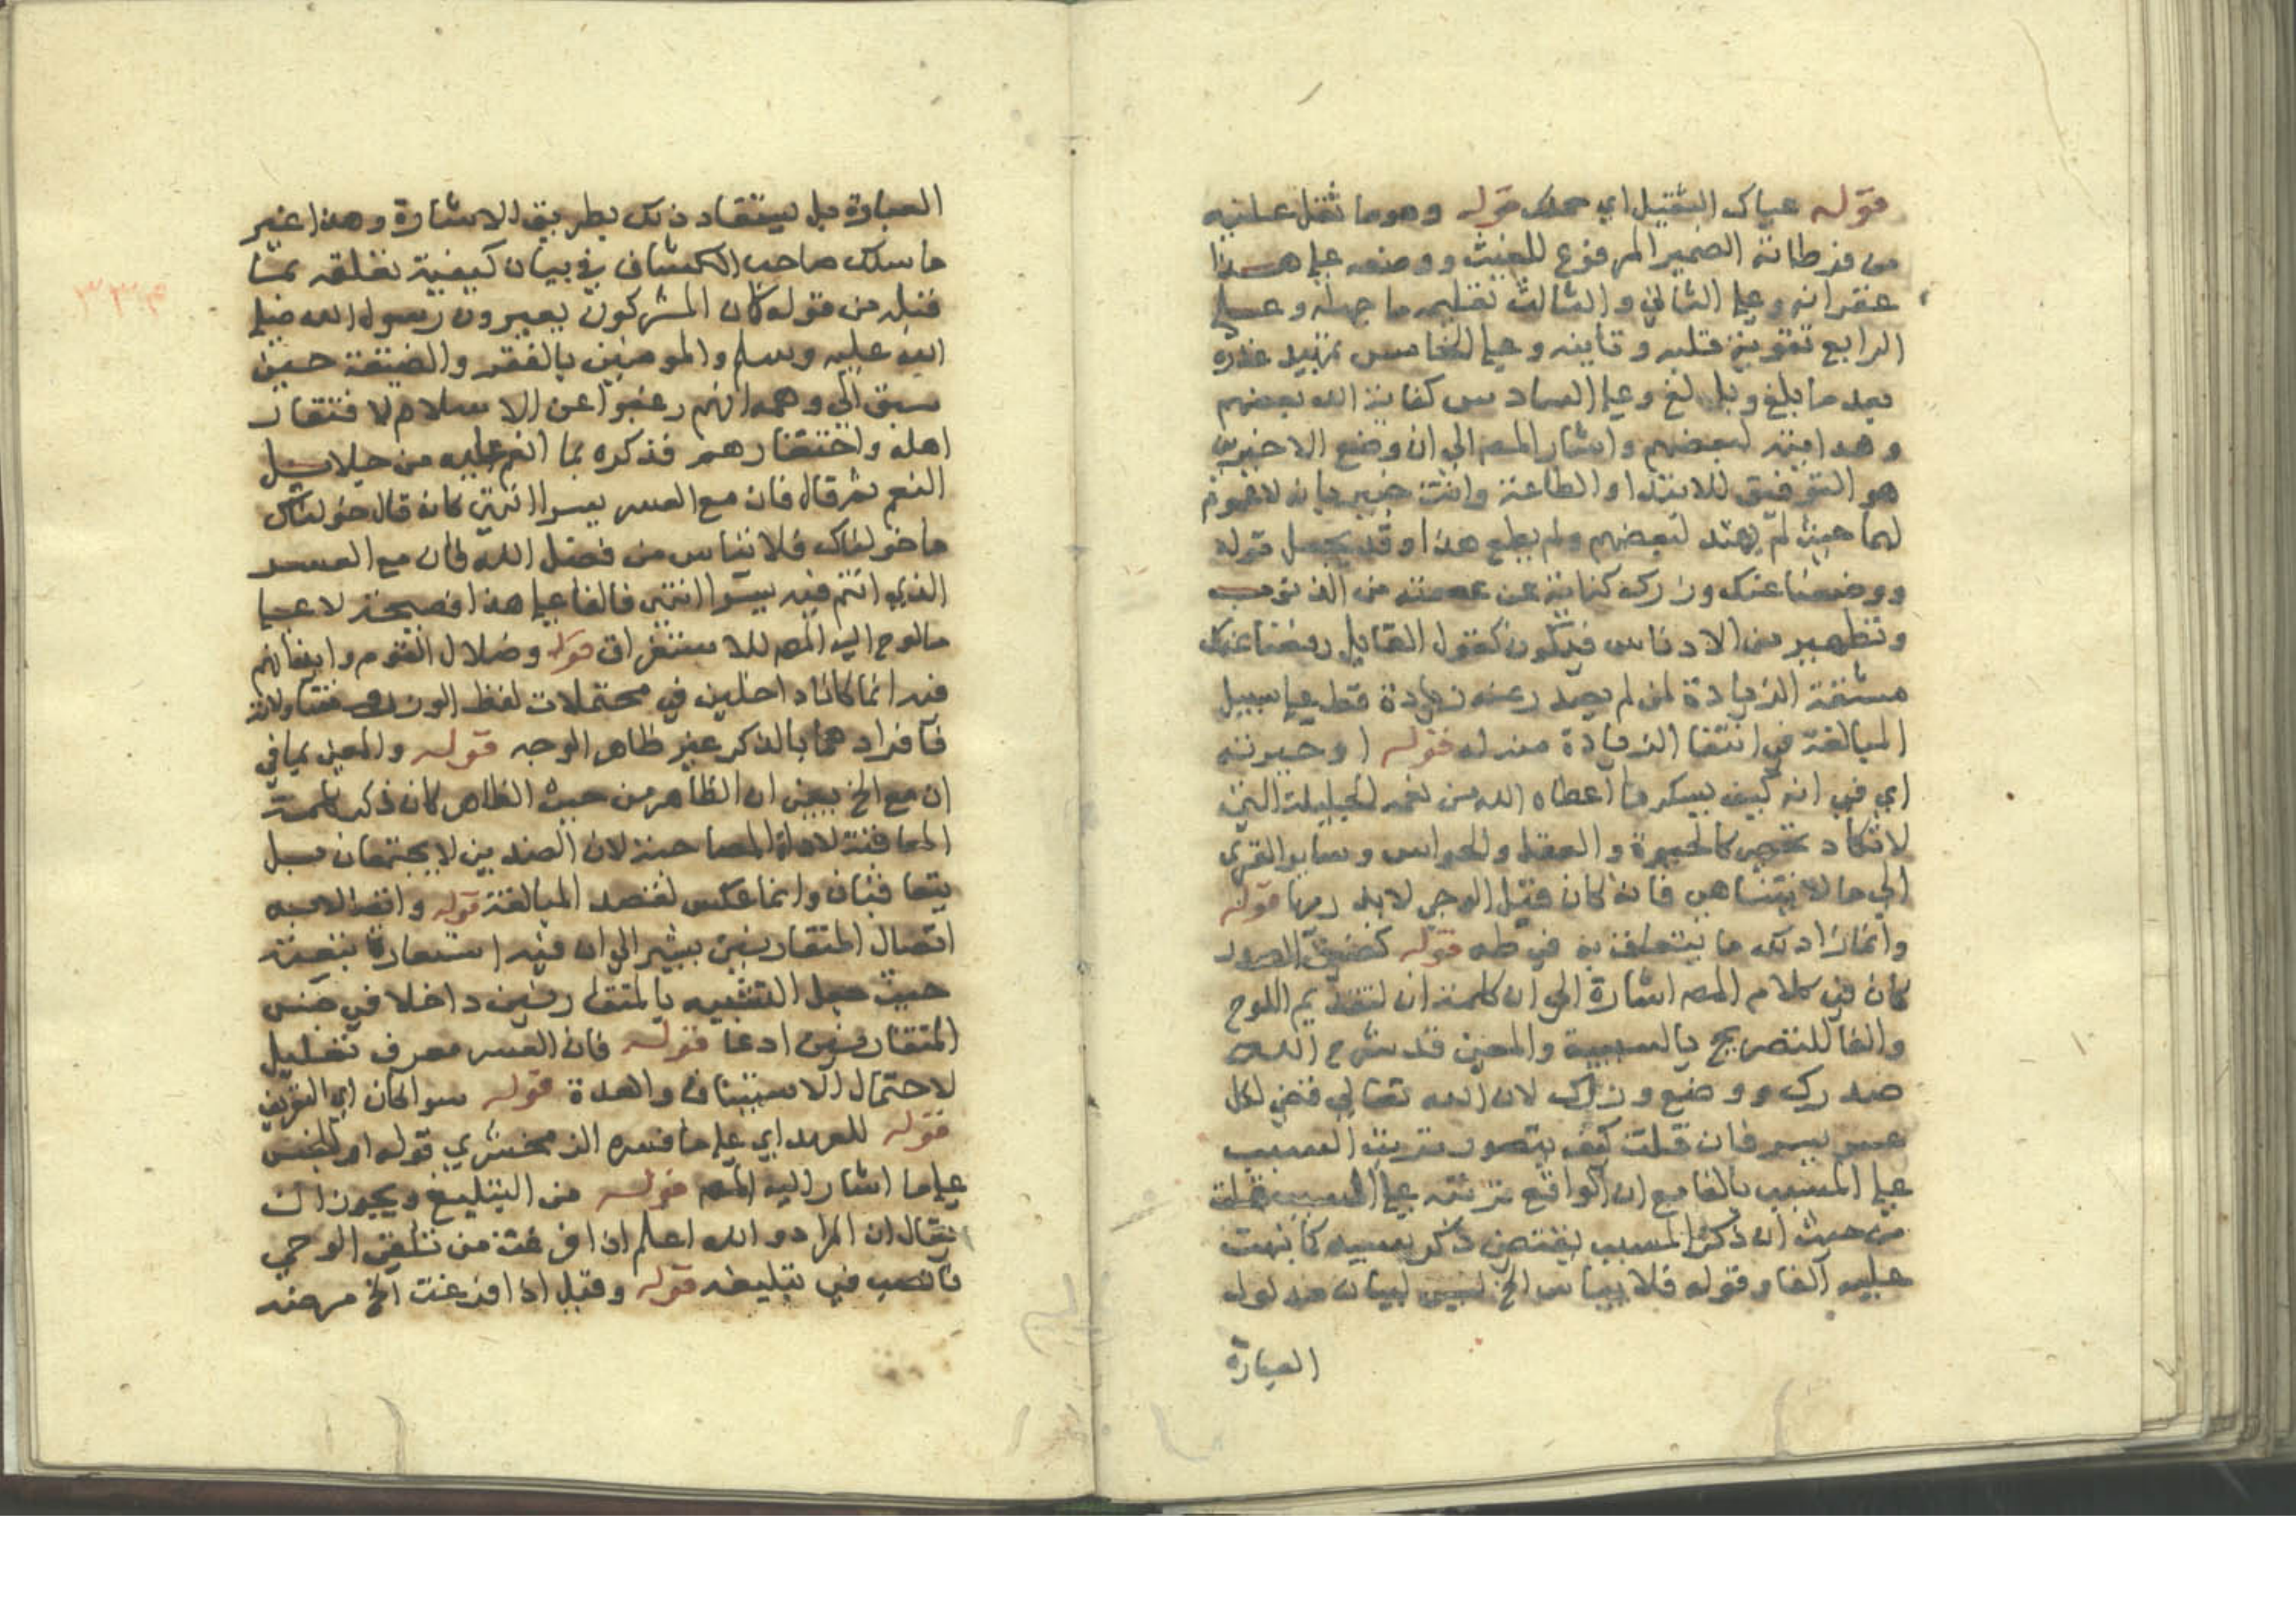 قوله عباك الثقيل اي حملك قوله وهو ما ثقل عليه
من فرطاته الضمير المرفوع للغيث ووضعه علي هذا
غفرانه وعلي الثاني والثالث تعليمه ما جهله وعلي
الرابع تقوية قلبه وتأينه وعلي الخامس تمهيد عذره
بعد ما بلغ وبالغ وعلي السادس كفاية الله بعضهم
وهدايته لبعضهم واشار المصم الي ان وضع الاخيرين
هو التوفيق للابتدا والطاعة وانت خبير بان لا عموم
لهما حيث لم يهتد لبعضهم ولم يطع هذا وقد يجعل قوله
ووضعنا عنك وزرك كناية عن عصمته من الذنوب
وتطهير من الادناس فيكون كقول القايل رفعنا عنك
مشقة الزيادة لمن لم يصدر عنه زيادة قط علي سبيل
المبالغة في انتفا الزيادة منه له قوله او حيرته
اي في انه كيف يشكر ما اعطاه الله من نعمه الجليلة التي
لا تكاد تحصي كالحيوة والعقل والحواس وساير القوي
الي ما لا يتناهي فانه كان قبل الوحي لا يدريها قوله
وانما زاد لك ما يتعلق به في طه قوله كضيق الصدر
كان في كلام المصم اشارة الي ان كلمة ان لتقديم اللوح
والفا للتصريح بالسببية والمعني قد شرح الله
صدرك ووضع وزرك لان الله تعالي قضي لكل
عسر يسر فان قلت كيف يتصور ترتيب السبب
علي المسبب بالفا مع ان الواقع ترتبه علي السبب قلت
من حيث ان ذكر المسبب يقتضي ذكر سببه كما نبهت
عليه آنفا وقوله فلا يياس الخ ليس لبيان مدلول
العبارة
العبارة بل يستفاد ذلك بطريق الاشارة وهذا غير
ما سلك صاحب الكشاف في بيان كيفية تعلقه بما
قبله من قوله كان المشركون يعيرون رسول الله صلي
الله عليه وسلم والمومنين بالفقر والضيقة حتي
سبق الي وهمه انهم رغبوا عن الاسلام لافتقار
اهله واحتقارهم فذكره بما انعم عليه من جلايل
النعم ثم قال فان مع العسر يسرا انتهي كانه قال خولناك
ما خولناك فلا تياس من فضل الله فان مع العسر
الذي انتم فيه يسرا انتهي فالفا علي هذا فصيحة لا علي
ما لوح اليه المصم للاستغراق قوله وضلال القوم وايذائهم
فيه انما كانا داخلين في محتملات لفظ الوزر
فافرادهما بالذكر غير ظاهر الوجه قوله والمعني بما في
ان مع الخ يعني ان الظاهر من حيث الظاهر كان ذكر كلمة
المعاقبة لا اداة المصاحبة لان الضدين لا يجتمعان بل
يتعاقبان وانما عكس لقصد المبالغة قوله واتصاله به
اتصال المتقاربين يشير الي ان فيه استعارة تبعية
حيث جعل التشبيه بالمتقاربين داخلا في جنس
المتقاربين ادعا قوله فان العسر معرف تعليل
لاحتمال الاستيناف والعدة قوله سوا كان اي التعريف
قوله للعهد اي علي ما فسره الزمخشري قوله او للجنس
علي ما اشار اليه المصم قوله من التبليغ ويجوز ان
يقال ان المراد والله اعلم اذا فرغت من تلقي الوحي
فانصب في تبليغه قوله وقيل اذا فرغت الخ مرضه
٣٣٤